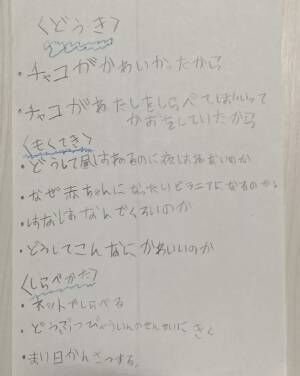 〈どうき〉
・チャコがかわいかったから
・チャコがあたしをしらべてほしいって
かおをしていたから
〈もくてき〉
・どうして昼はねるのに夜はねないのか
・なぜ赤ちゃんに
なるのか
はなはなんでくろいのか
・どうしてこんなにかわいいのか
〈しらべかた〉
・ネットでしらべる
・どうぶつびょういんのせんせいにきく
・まい日かんさつする。